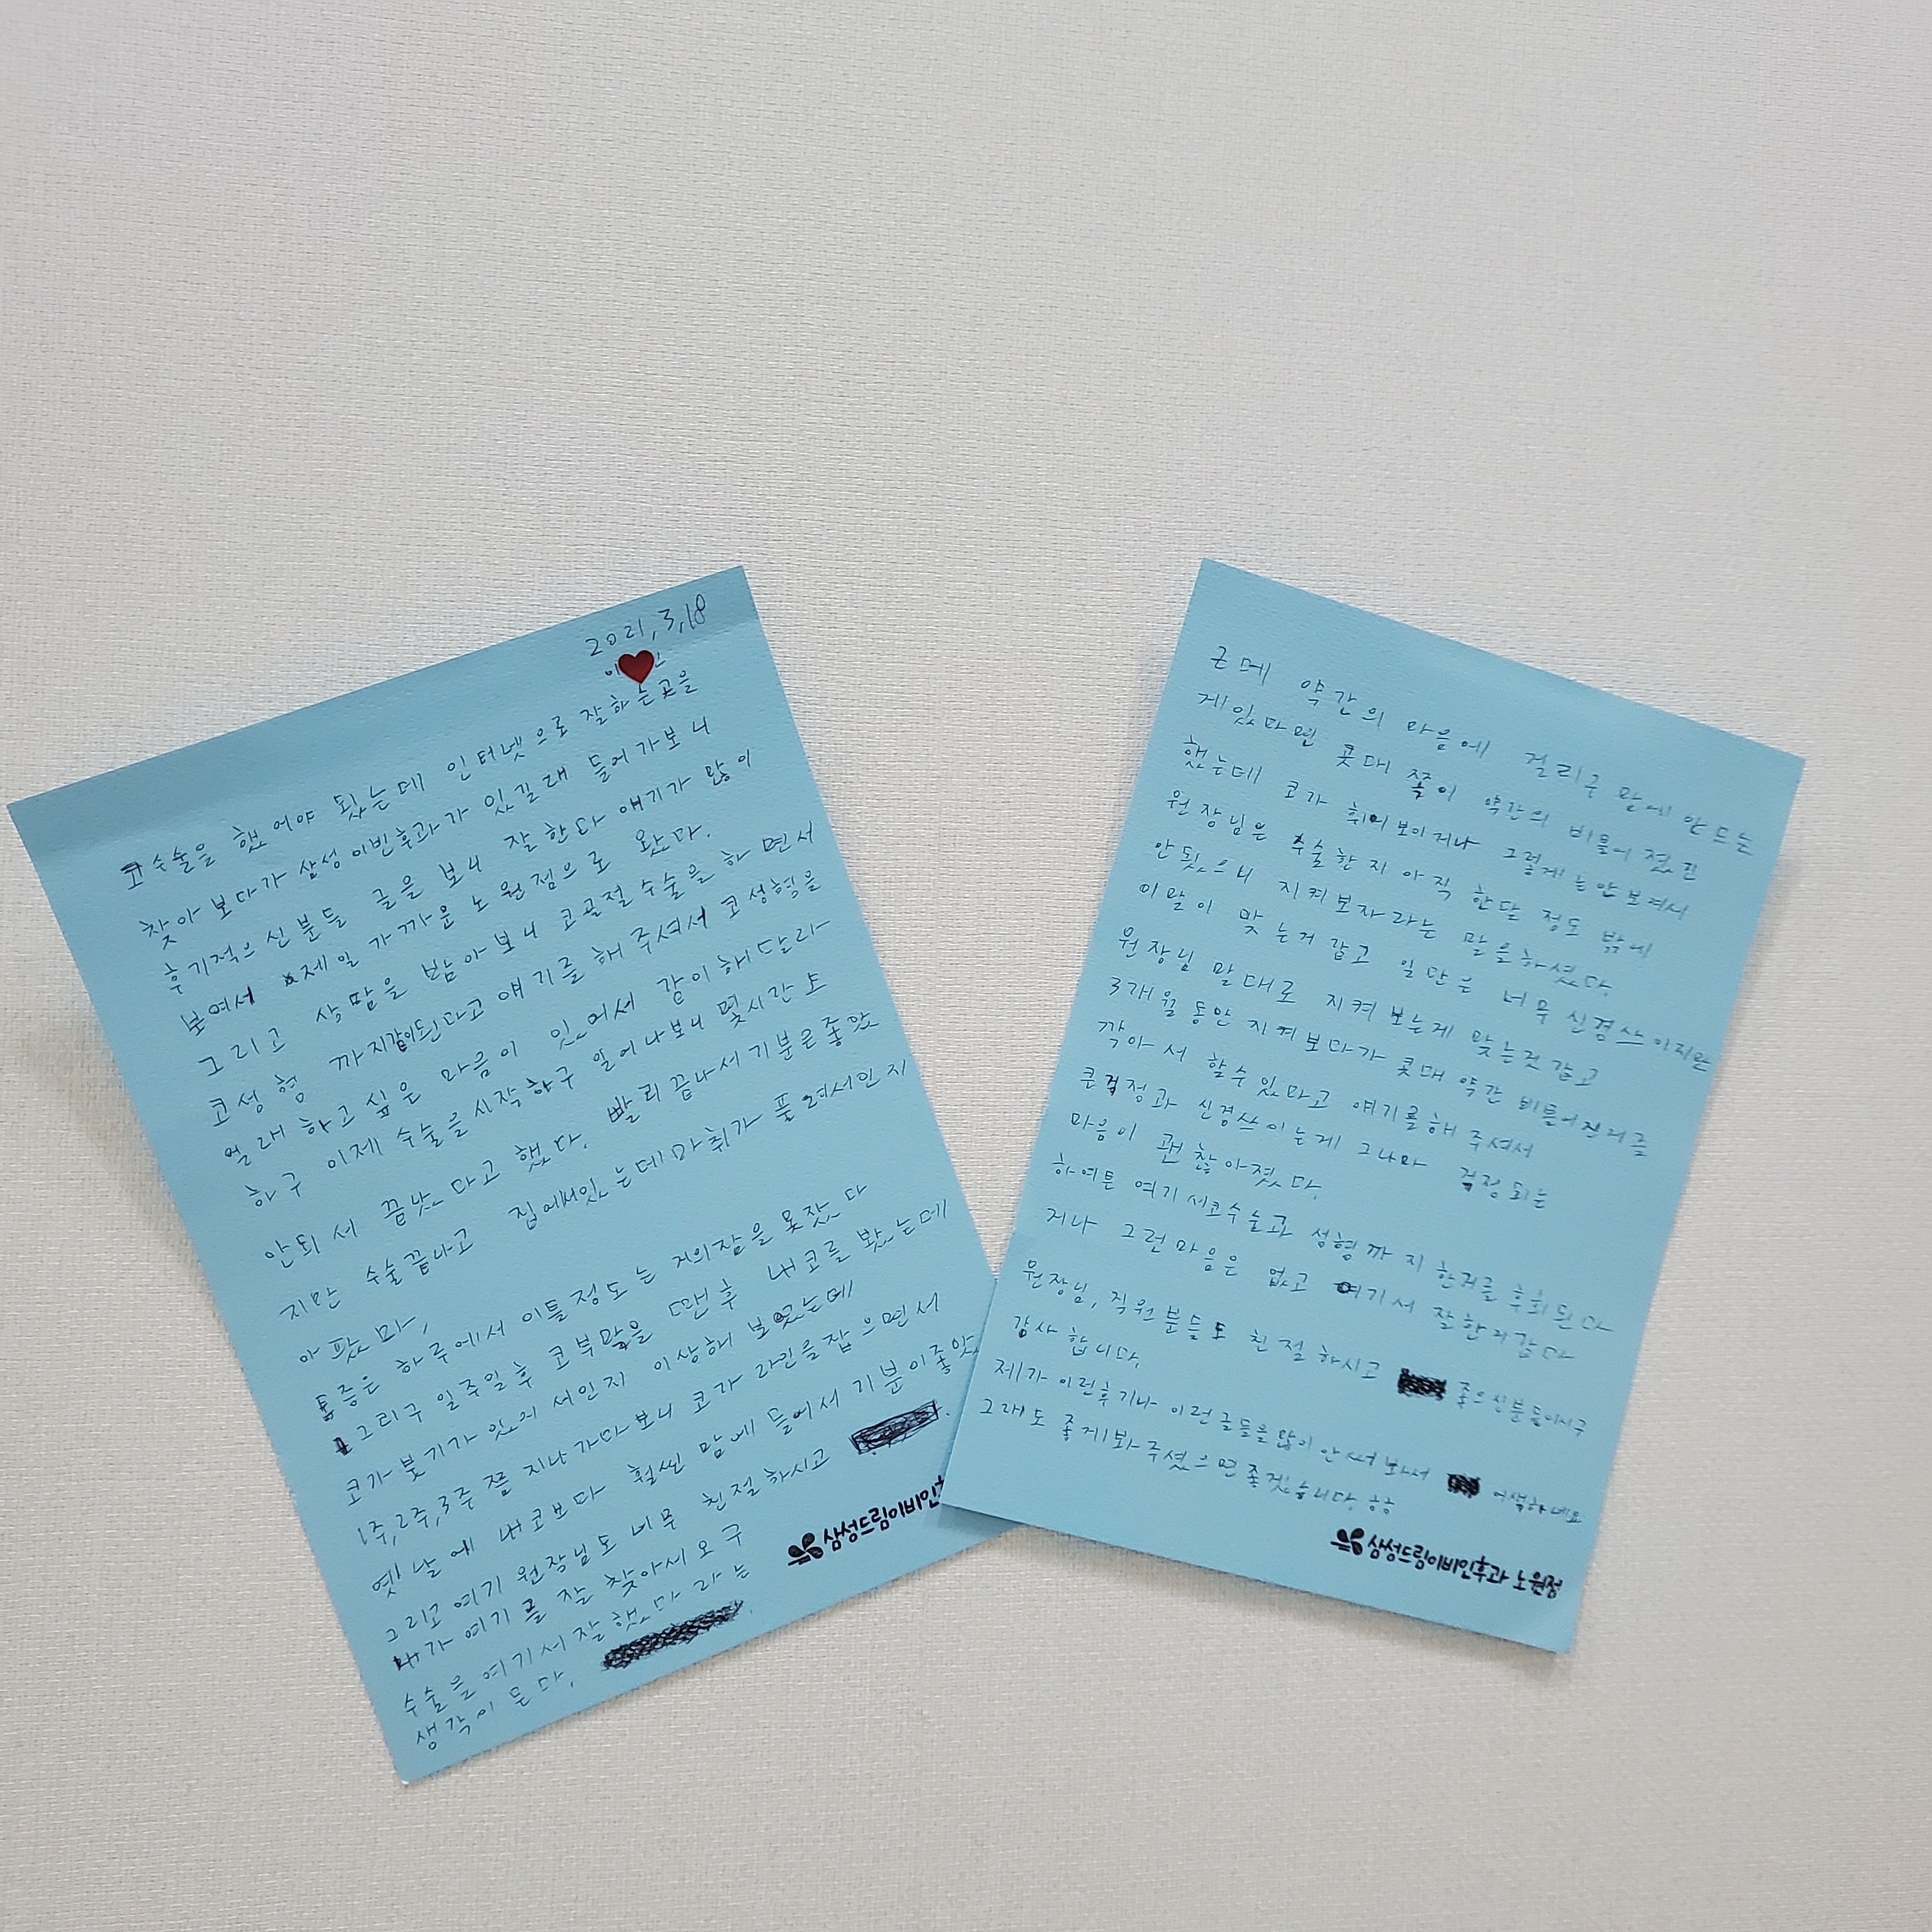 2021, 3, 18
이
코수술을 했어야 됬는데 인터넷으로 잘하는곳을
찾아보다가 삼성이빈후과가 있길래 들어가보니
후기적으신분들 글을 보니 잘한다 얘기가 많이
보여서 제일 가까운 노원점으로 왔다.
그리고 상담을 받아보니 코골절수술을 하면서
코성형 까지같이된다고 얘기를 해주셔서 코성형을
원래 하고싶은 마음이 있어서 같이해달라
하구 이제 수술을시작하구 일어나보니 몇시간도
안되서 끝났다고 했다. 빨리끝나서 기분은좋았
지만 수술끝나고 집에서있는데 마취가 풀려서인지
아팠다,
통증은 하루에서 이틀정도는 거의잠을못잤다
그리구 일주일후 코부목을 땐후 내코를 봤는데
코가붓기가있어서인지 이상해보였는데
1주,2주,3주쯤 지나가다보니 코가 라인을잡으면서
옛날에 내코보다 훨씬 맘에들어서 기분이좋았
그리고 여기 원장님도 너무 친절하시고
내가 여기를 잘 찾아서오구
수술을 여기서잘했다 라는
생각이 든다.
삼성드림이비인
근데 약간의 마음에 걸리구 맘에안드는
게있다면 콧대쪽이 약간의 비틀어졌긴
했는데 코가 휘어보이거나 그렇게는안보여서
원장님은 수술한지 아직 한달정도 밖에
안됬으니 지켜보자라는 말을하셨다.
이말이 맞는거같고 일단은 너무신경쓰이지만
원장님 말대로 지켜보는게 맞는것같고
3개월동안지켜보다가 콧대 약간 비틀어진거를
깍아서 할수있다고 얘기를해 주셔서
큰걱정과 신경쓰이는게 그나마 걱정되는
마음이 괜찮아졌다.
하여튼 여기서코수술과 성형까지한거를 후회된다
거나 그런마음은 없고 여기서 잘한거같다
원장님, 직원분들도 친절하시고 좋으신분들이시구
감사합니다.
제가이런후기나 이런글들을많이안써봐서 어색하네요
그래도 좋게봐주셨으면좋겠습니다. ㅎㅎ
삼성드림이비인후과 노원점